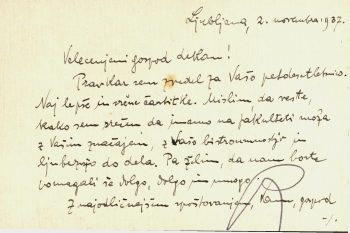 Ljubljana, 2. novembra 1937.
Velecenjeni gospod dekan!
Pravkar sem zvedel za Vašo petdesetletnico.
Najlepše in srčne čestitke. Mislim da veste,
kako sem srečen da imamo na fakulteti moža
z Vašim značajem, z Vašo bistroumnostjo in
ljubeznijo do dela. Pa želim, da nam boste
pomagali še dolgo, dolgo in mnogo.
Z najodličnejšim spoštovanjem, Vam, gospod
-/.